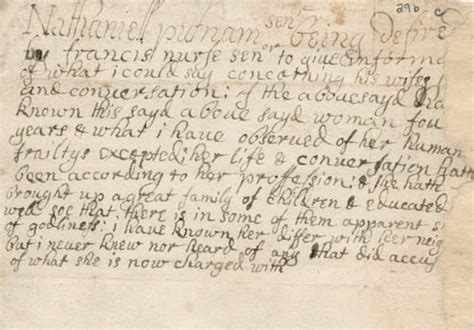 29b
Nathaniell putnam senr being desire
by francis nurse senr to give informa
of what i could say concerning his wifes
and conversation: I the abovesayd ha
known this sayd aboue sayd woman fou
years & what i have observed of her human
frailtys excepted: her life & conversation hath
been according to her profession: & she hath
brought up a great family of children & educated
well soe that there is in some of them apparent s
of godliness: i have known her differ with her neig
but i never knew nor heard of any that did accus
of what she is now charged with